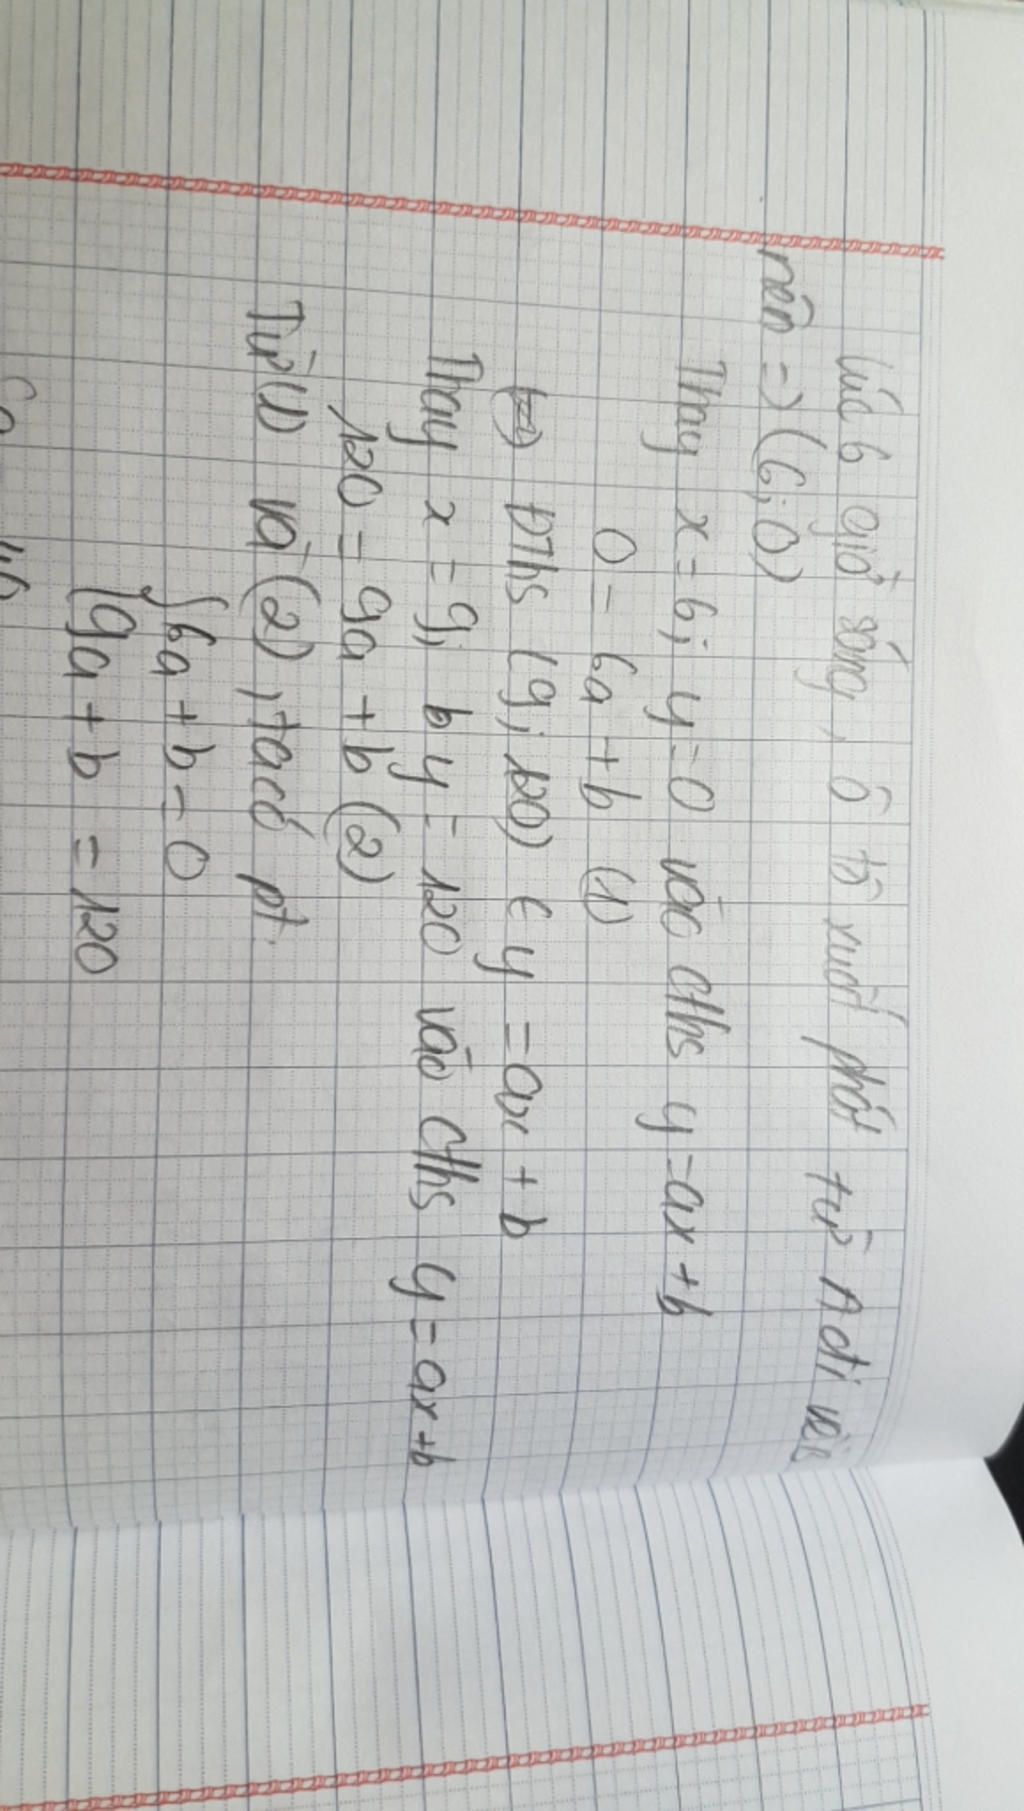 Lúc 6 giờ sáng, ô tô xuất phát từ A đi
nên => (6;0)
Thay x = 6; y = 0 vào cths y = ax + b
0 = 6a + b (1)
ĐThs (9; 120) ∈ y = ax + b
Thay x = 9; b y = 120 vào cths y = ax + b
120 = 9a + b (2)
Từ (1) và (2), ta có pt
{6a + b = 0
{9a + b = 120